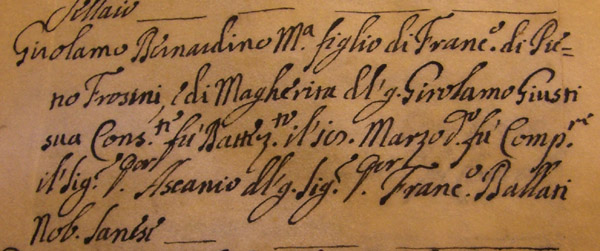 Sellaio
Girolamo Bernardino Mª. figlio di Franc.º di Pie=
tro Frosini, e di Magherita dl'q. Girolamo Giusti
sua Cons.te fù Battez.to il dì Marzo d.º fù Comp.re
il Sig.r D.or Ascanio dl'q. Sig.r D.or Franc.º Ballati
Nob. Sanese